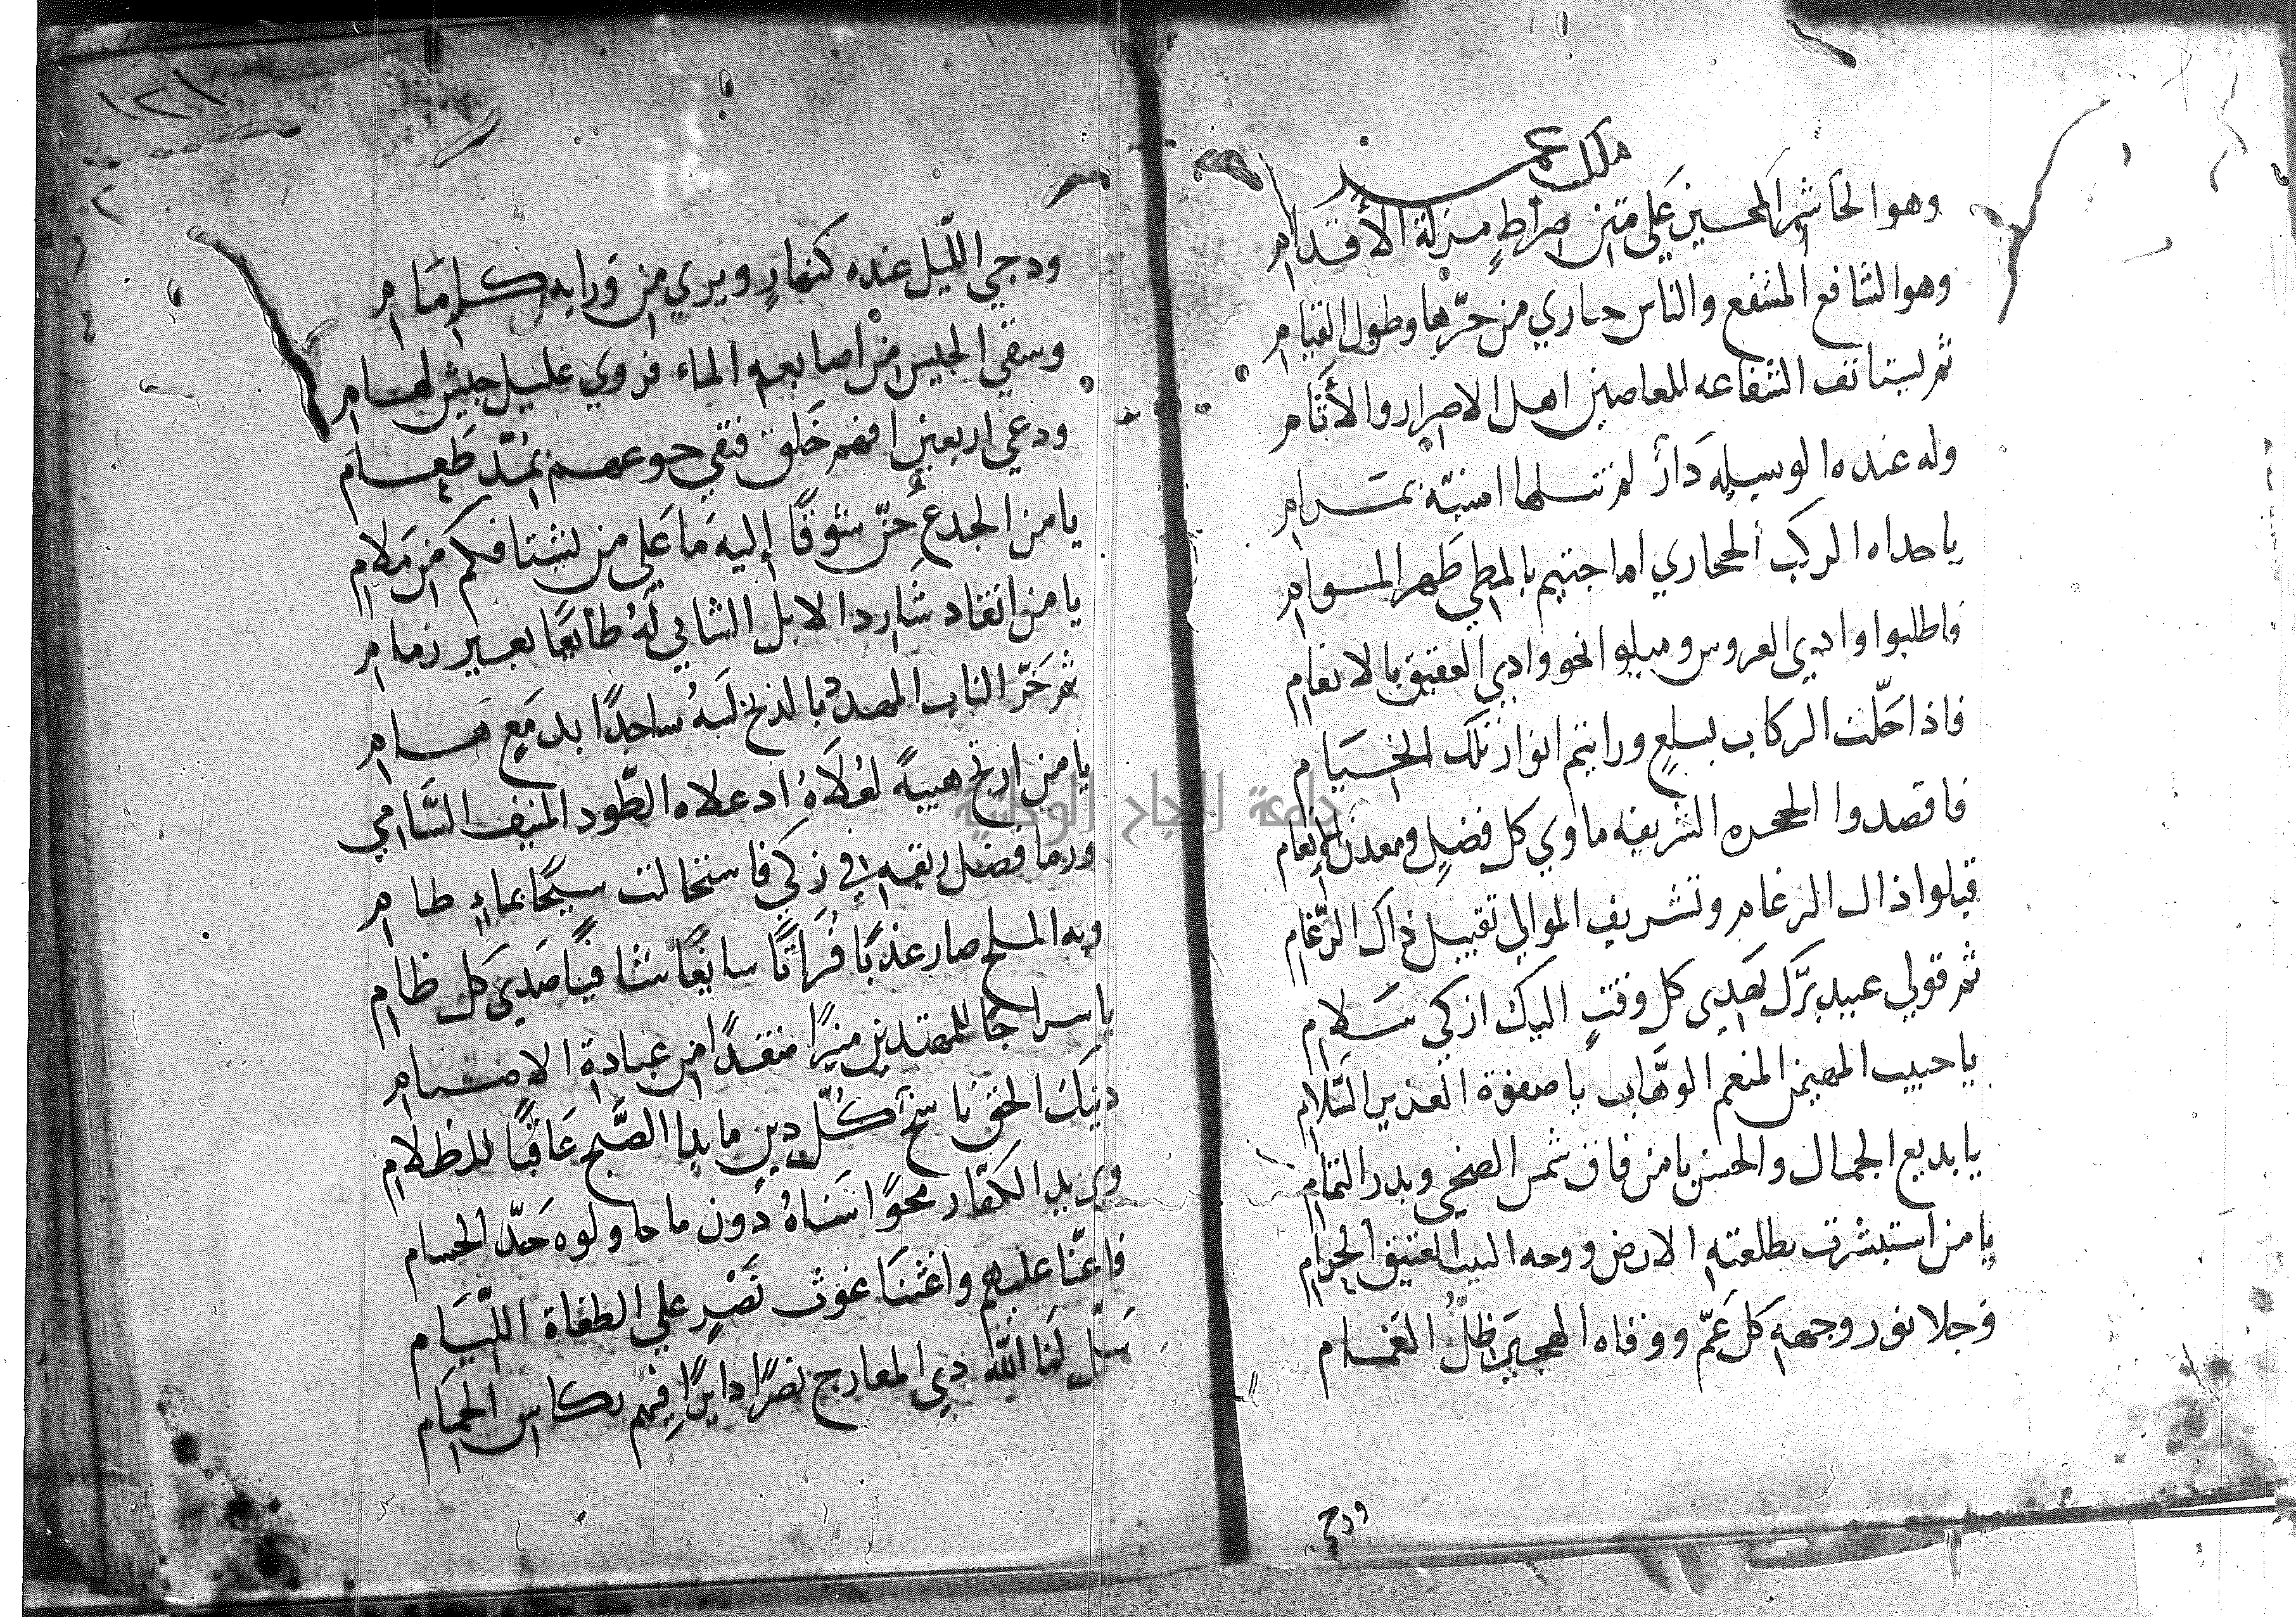 ملك عمـد
وهو الحاشر المحسين علي متن صراطٍ مزلة الأقدام
وهو الشافع المشفع والناس حياري من حرّها وطول القيام
ثم ليستانف الشفاعه للعاصين اهل الاصرار والأثام
وله عنده الوسيله دارٌ لم تنلها امنيّة بمرام
يا حداه الركب الحجازي اما جيتم بالمطي ظهر الموام
فاطلبوا وادي العروس وميلوا نحو وادي العقيق بالانعام
فاذا حَلّت الركاب بسلعٍ ورايتم انوار تلك الخيام
فاقصدوا الحجره الشريفه ماوي كل فضلٍ ومعدن الإنعام
قبلوا ذاك الرغام وتشريف الموالي تقبيل ذاك الرّغام
ثم قولي عبيد برّك يهدي كل وقتٍ اليك ازكي سَلام
يا حبيب المهيمن المنعم الوهَّاب يا صفوة القدير السّلام
يا بديع الجمال والحسن يا من فاق شمس الضحي وبدر التمام
يا من استبشرت بطلعته الارض ووجه البيت العتيق الحرام
وجلا نور وجهه كل غمّ ووقاه الهجير ظلُّ الغمام
ودجي
١٢١
ودجي اللّيل عنده كنهارٍ ويري من وَرايه كل إمَام
وسقي الجيش من اصابعه الماء فروي غليل جيش لهام
ودعي اربعين افقهم خَلق فقي جوعهم بمُدّ طَعام
يا من الجدع حنّ شوقًا إليه مَا عَلي من يشتاقكم من مَلام
يا من انقاد شارد الابل الشاني لَهُ طايعًا بغير زمام
ثم خَرّ الناب المهدد بالذبح لَهُ ساجدًا بدمَعٍ هَام
يا من ارتج هيبةً لعُلَاهُ اد علاه الطّود المنيف السَّامي
ورما فضل ريقه في زكي فاستحالت سيحًا بماءٍ طام
وبه الملح صار عذبًا فُراتًا سايغًا شافيًا صَدي كل ظام
يا سراجًا للمهتدين منيرًا منقدًا من عبادة الاصنام
دنيك الحق ناسخ كُلّ دينٍ ما بدا الصَّبح عَاقبًا للظلام
ويريد الكفار محوًا سَناهُ دُون ما حاولوه حَدّ الحسام
فاعنّا عليهم واغثنَا غوث نَصْرٍ علي الطغاة اللّيَام
سَل لنَا اللّه ذي المعارج نصرًا دايرًا فيهم بكاس الحمَام